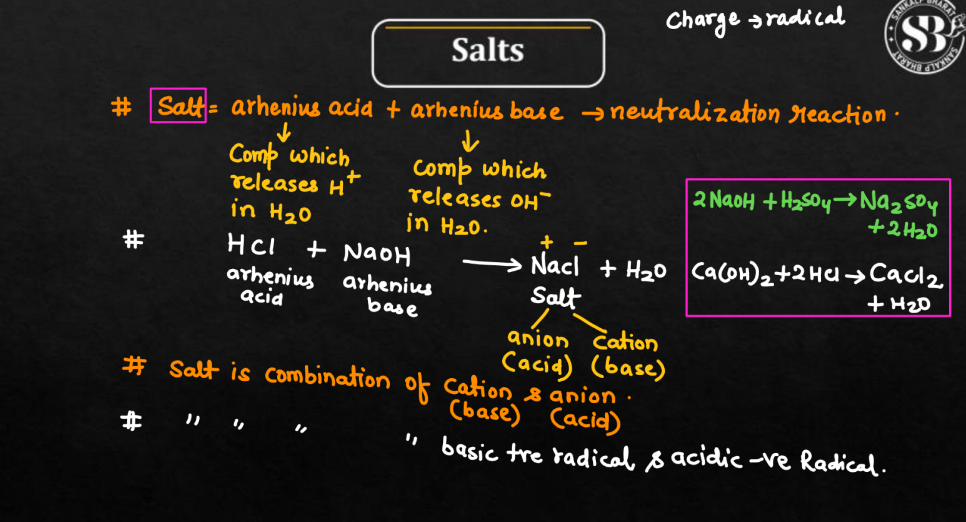 Charge → radical
SANKALP BHARAT
SB
SANKALP BHARAT
Salts
# Salt = arhenius acid + arhenius base → neutralization reaction.
Comp which releases H⁺ in H₂O
Comp which releases OH⁻ in H₂O.
# HCl + NaOH → NaCl + H₂O
+ −
arhenius acid
arhenius base
Salt
anion (acid)
Cation (base)
2NaOH + H₂SO₄ → Na₂SO₄ + 2H₂O
Ca(OH)₂ + 2HCl → CaCl₂ + H₂O
# Salt is combination of Cation & anion.
(base) (acid)
# " " " " basic +ve radical & acidic -ve Radical.